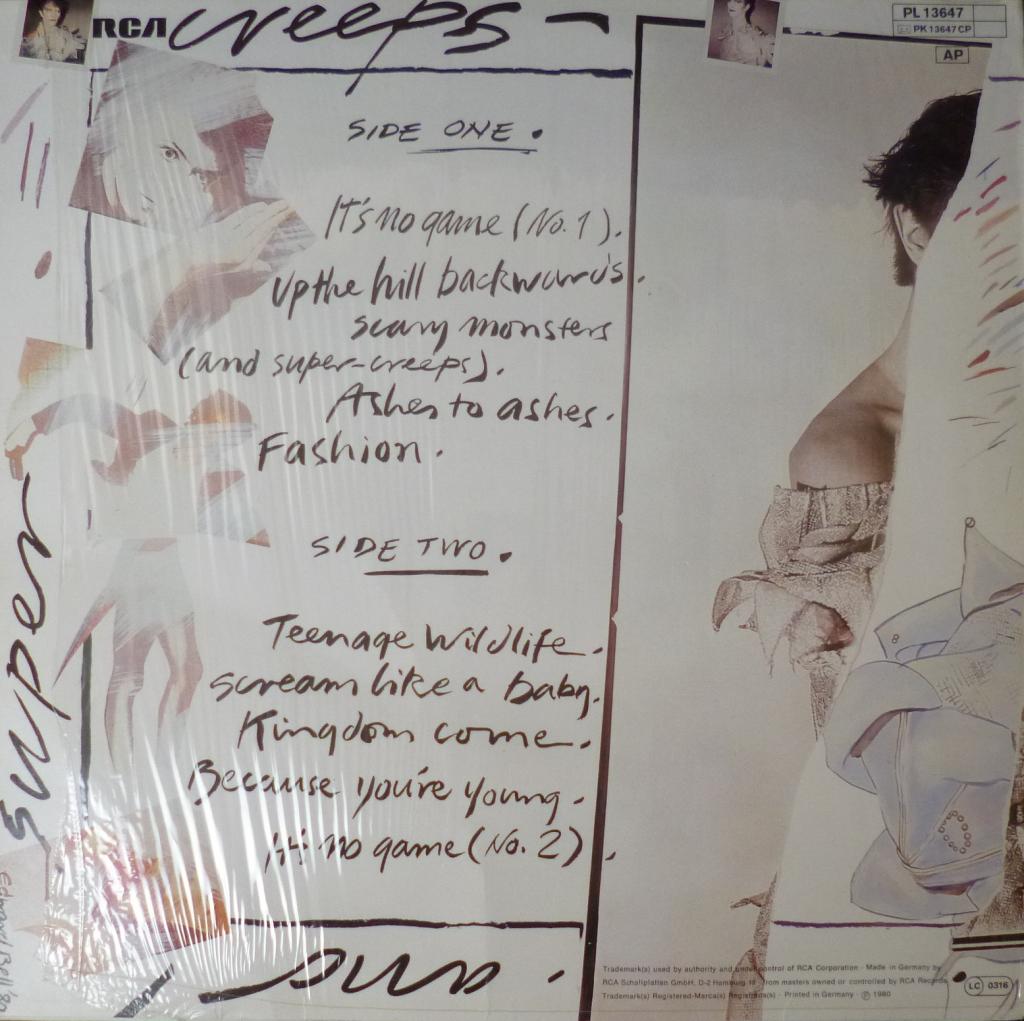 RCA creeps -
PL 13647
PK 13647 CP
AP
SIDE ONE.
It's no game (No. 1).
Up the hill backwards.
scary monsters
(and super-creeps).
Ashes to ashes.
Fashion.
SIDE TWO.
Teenage Wildlife.
scream like a baby.
Kingdom come.
Because you're young.
It's no game (No. 2).
super
Edward Bell '80
Trademark(s) used by authority and under control of RCA Corporation · Made in Germany by
RCA Schallplatten GmbH, D-2 Hamburg from masters owned or controlled by RCA Records
Trademark(s) Registered-Marca(s) Registrada(s) · Printed in Germany · ℗ 1980
LC 0316